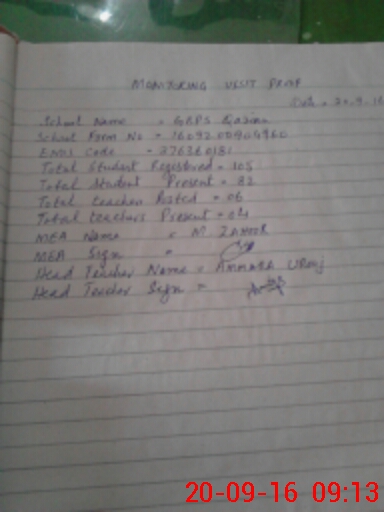 MONITORING VISIT PROF
Date = 20.9.16
School Name = GGPS Qasian
School Form No = 1609200904960
EMIS Code = 376360181
Total Student Registered = 105
Total Student Present = 82
Total teacher Posted = 06
Total teachers Present = 04
MEA Name = M. ZAHOOR
MEA Sign =
Head Teacher Name = AMMARA Urooj
Head Teacher Sign =
20-09-16 09:13